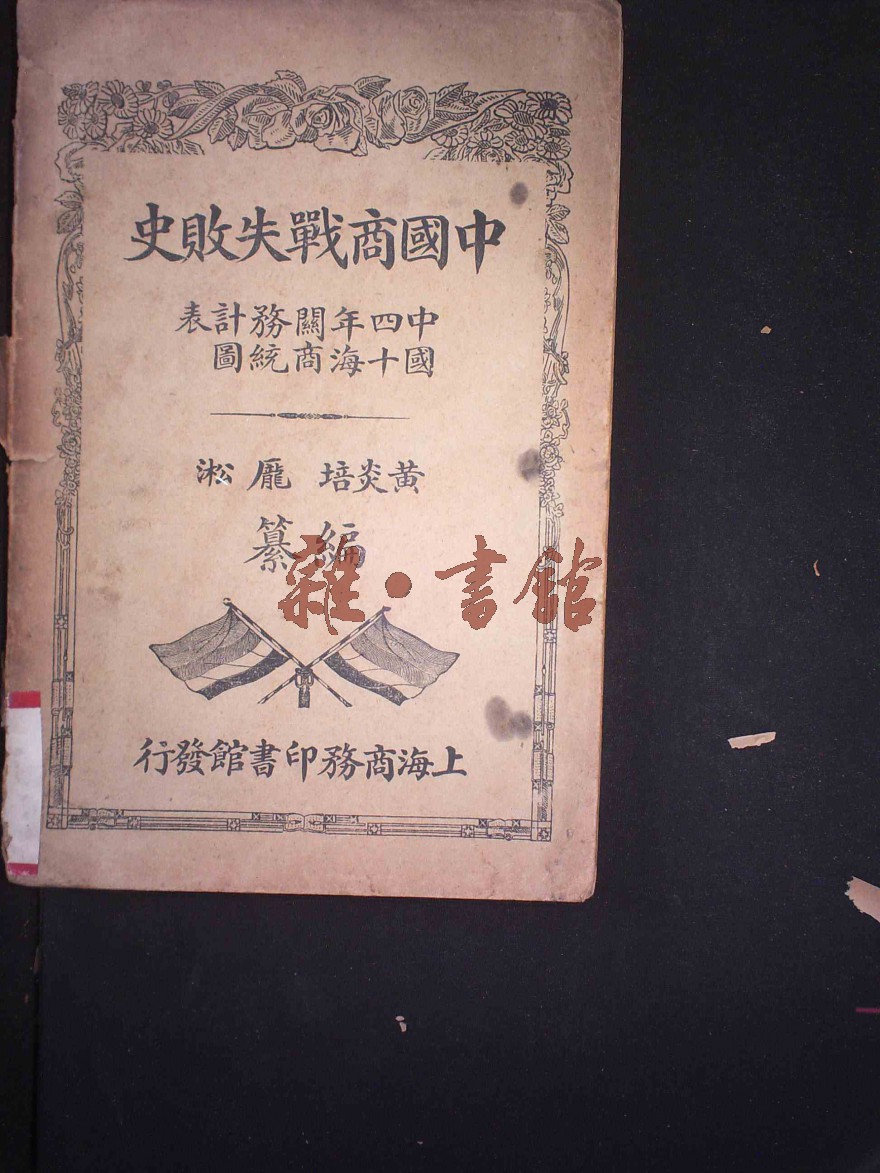 中國商戰失敗史
中國四十年海關商務統計圖表
黃炎培 龐淞
編纂
雜·書館
上海商務印書館發行